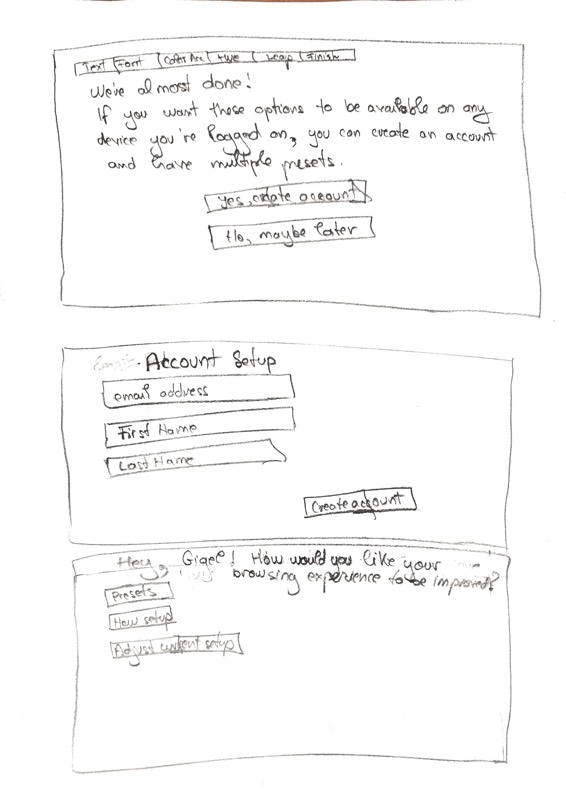 Text Font Color Finish
We're almost done!
If you want these options to be available on any
device you're logged on, you can create an account
and have multiple presets.
Yes, create account
No, maybe later
Account Setup
email address
First Name
Last Name
Create account
Hey, Gigel! How would you like your
browsing experience to be improved?
Presets
New setup
Adjust current setup